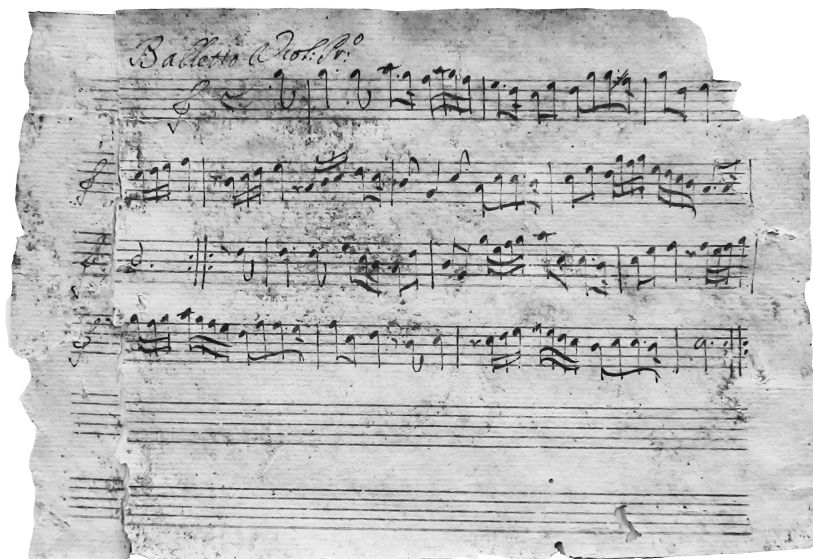 Balletto Viol: Pr:º